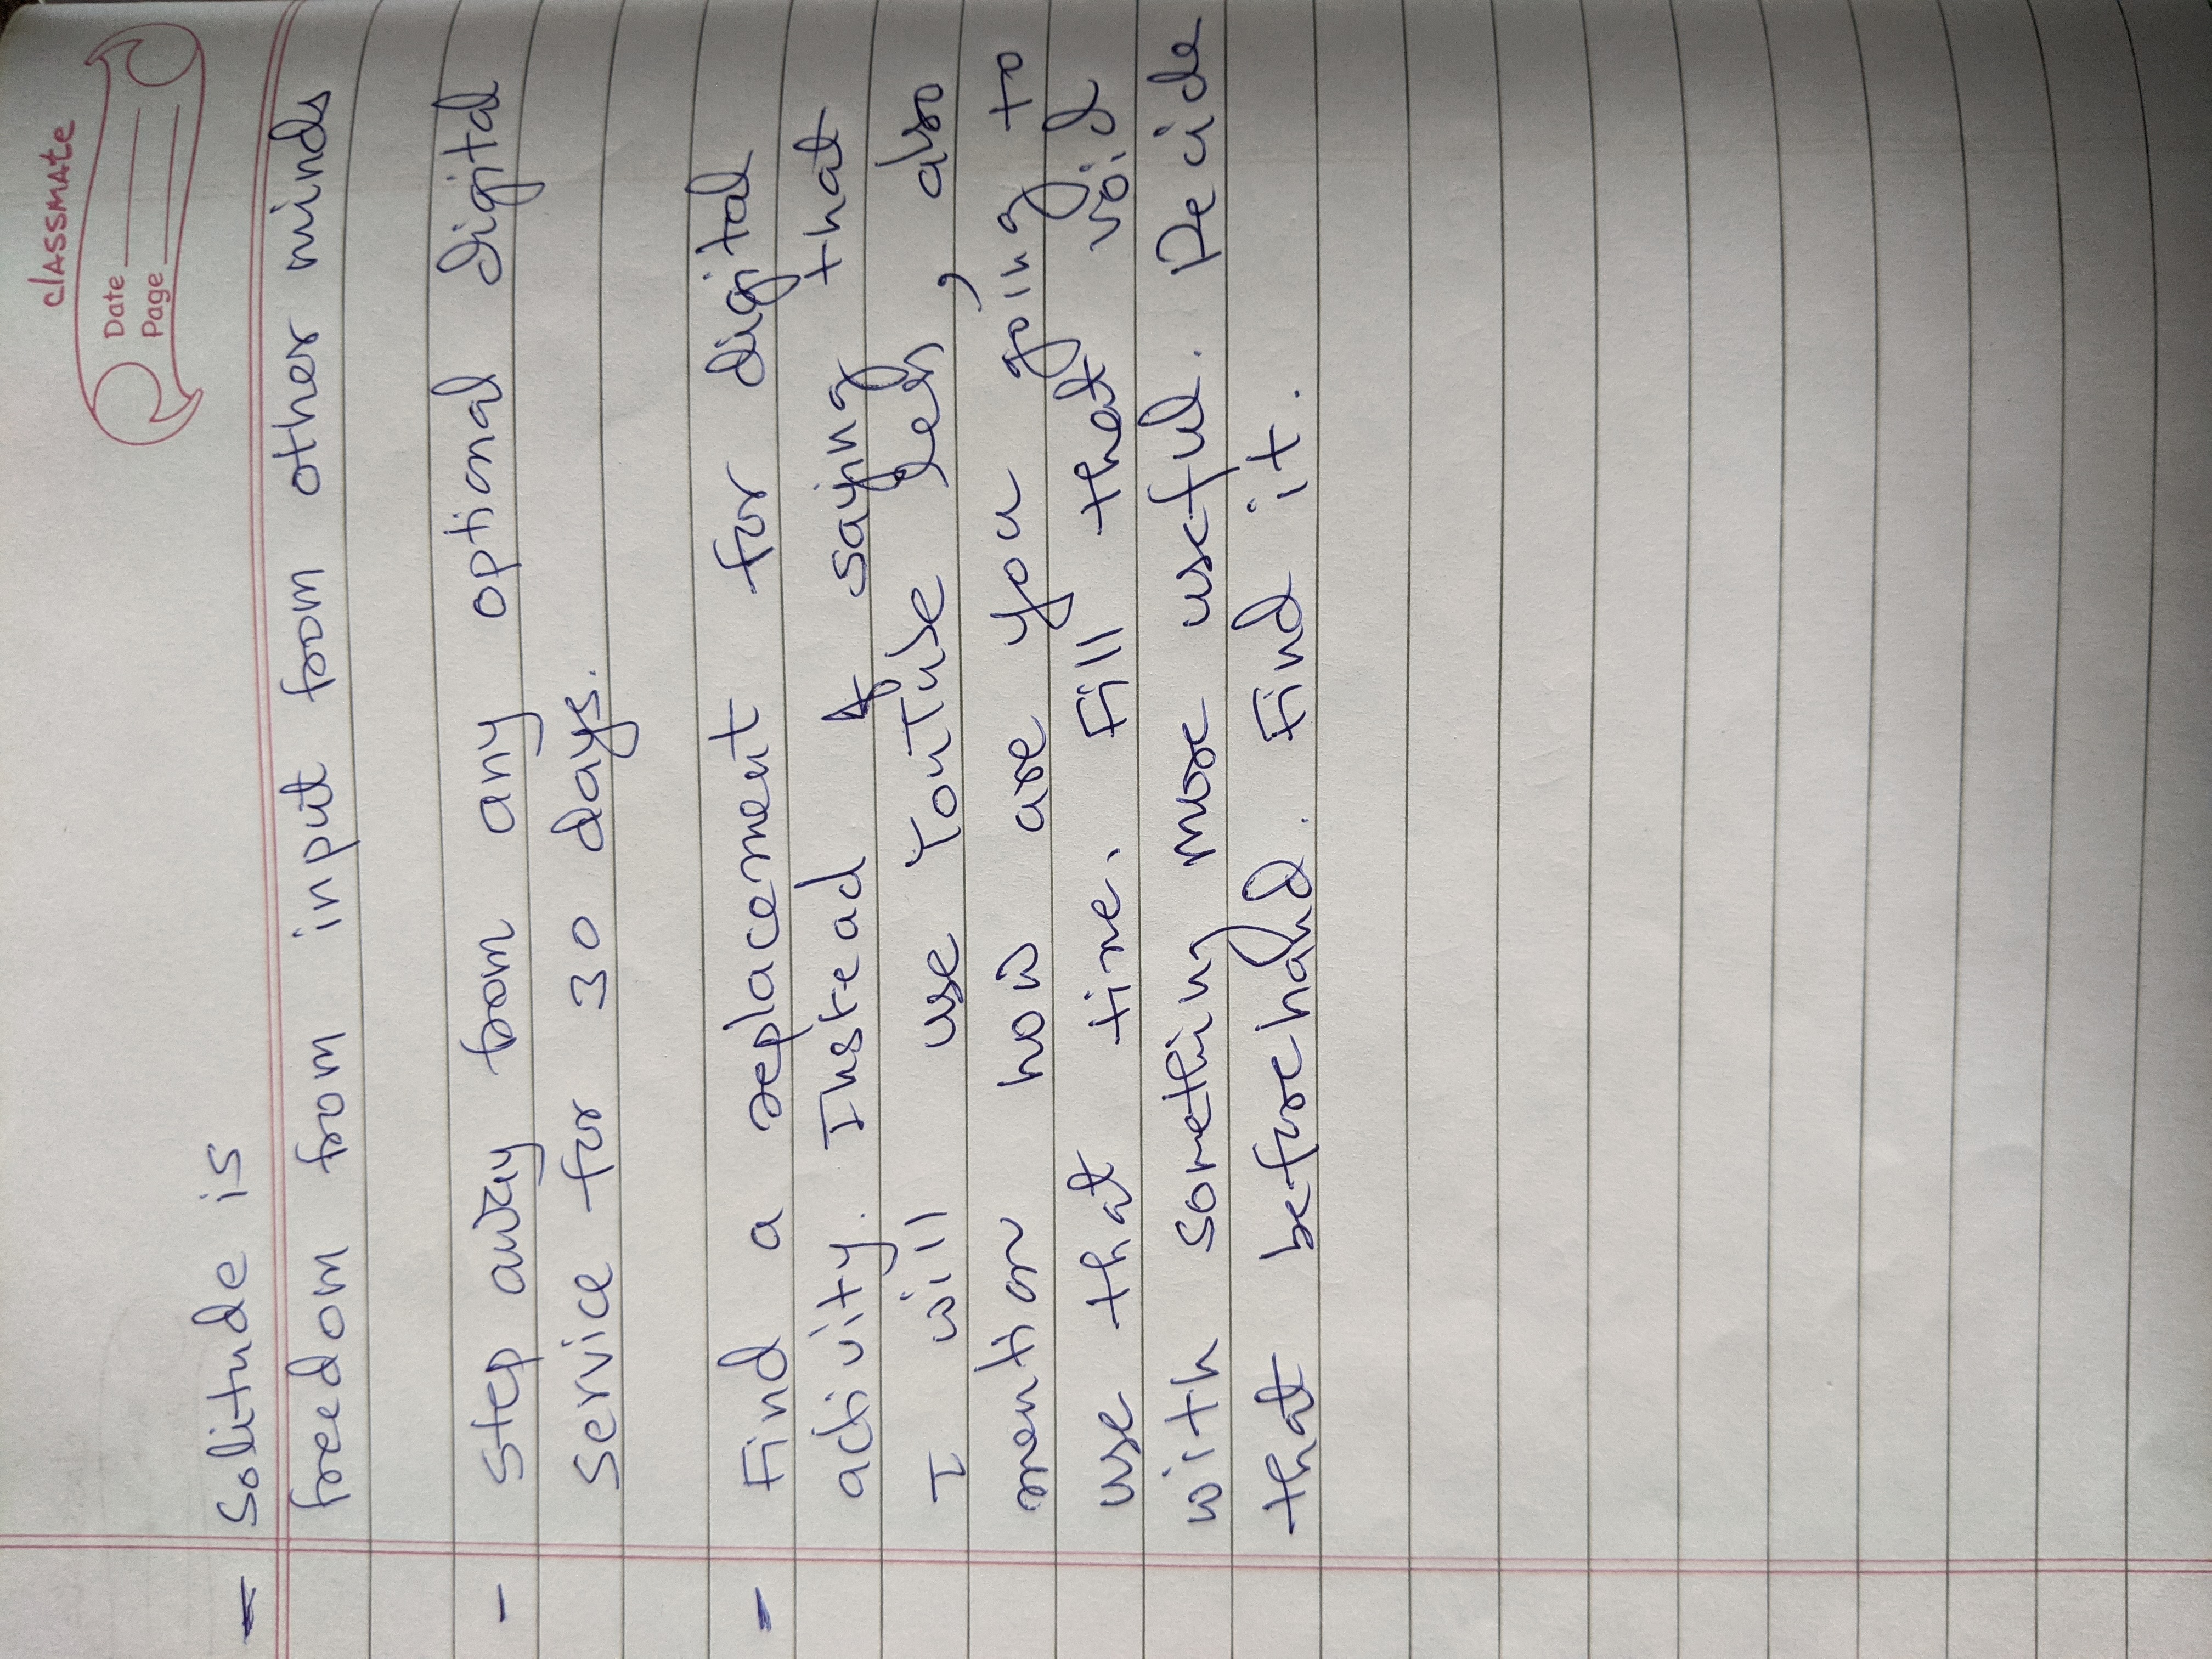 classmate
Date
Page
- Solitude is
freedom from input from other minds
- Step away from any optional digital
service for 30 days.
- Find a replacement for digital
activity. Instead of saying that
I will use YouTube less, also
mention how are you going to
use that time. Fill that void
with something more useful. Decide
that beforehand. Find it.